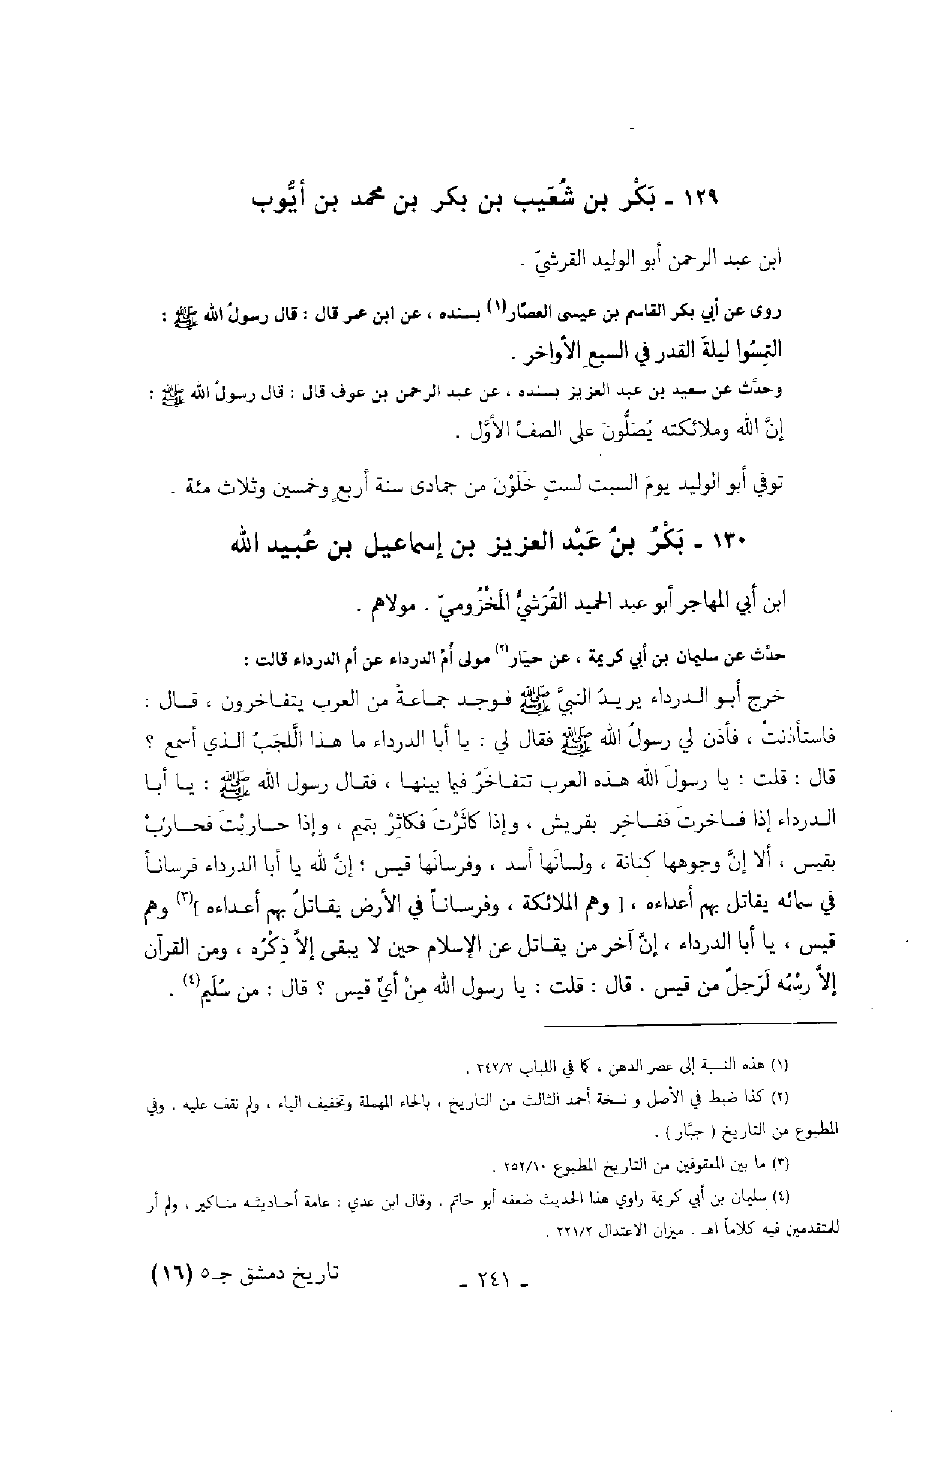 ١٢٩ - بَكْر بن شُعَيب بن بكر بن محمد بن أيُّوب
ابن عبد الرحمن أبو الوليد القرشيّ .
روى عن أبي بكر القاسم بن عيسى العصّار(١) بسنده ، عن ابن عمر قال : قال رسولُ الله ﷺ :
التمِسُوا ليلةَ القدر في السبعِ الأواخر .
وحدَّث عن سعيد بن عبد العزيز بسنده ، عن عبد الرحمن بن عوف قال : قال رسولُ الله ﷺ :
إنَّ الله وملائكته يُصَلُّونَ على الصفِّ الأوَّل .
توفي أبو الوليد يومَ السبت لستٍ خَلَوْن من جمادى سنة أربعٍ وخمسين وثلاث مئة .
١٣٠ - بَكْرُ بنُ عَبْد العزيز بن إسماعيل بن عُبيد الله
ابن أبي المهاجر أبو عبد الحميد القُرَشيُّ المَخْزُوميّ . مولاهم .
حدَّث عن سليمان بن أبي كريمة ، عن حيَار(٢) مولى أمّ الدرداء عن أم الدرداء قالت :
خرج أبو الدرداء يريدُ النبيَّ ﷺ فوجد جماعةً من العرب يتفاخرون ، قال :
فاستأذنتُ ، فأذن لي رسولُ الله ﷺ فقال لي : يا أبا الدرداء ما هذا اللَّجَبُ الذي أسمع ؟
قال : قلت : يا رسولَ الله هذه العرب تتفاخَرُ فيما بينها ، فقال رسول الله ﷺ : يا أبا
الدرداء إذا فاخرتَ ففاخِر بقريش ، وإذا كَاثَرْتَ فكاثِرْ بتميم ، وإذا حاربْتَ فحارِبْ
بقيس ، ألا إنَّ وجوهها كِنانة ، ولسانَها أسد ، وفرسانَها قيس ؛ إنَّ لله يا أبا الدرداء فرساناً
في سمائه يقاتل بهم أعداءه ، [ وهم الملائكة ، وفرساناً في الأرض يقاتلُ بهم أعداءه ](٣) وهم
قيس ، يا أبا الدرداء ، إنَّ آخر من يقاتل عن الإسلام حين لا يبقى إلاَّ ذِكْرُه ، ومن القرآن
إلاَّ رسْمُه لَرَجلٌ من قيس . قال : قلت : يا رسول الله مِنْ أيِّ قيس ؟ قال : من سُلَيم(٤) .
(١) هذه النسبة إلى عصر الدهن ، كما في اللباب ٣٤٢/٢ .
(٢) كذا ضبط في الأصل و نسخة أحمد الثالث من التاريخ ، بالحاء المهملة وتخفيف الياء ، ولم نقف عليه . وفي
المطبوع من التاريخ ( جبَّار ) .
(٣) ما بين المعقوفين من التاريخ المطبوع ٢٥٢/١٠ .
(٤) سليمان بن أبي كريمة راوي هذا الحديث ضعفه أبو حاتم . وقال ابن عدي : عامة أحاديثه مناكير ، ولم أر
للمتقدمين فيه كلاماً اهـ . ميزان الاعتدال ٢٢١/٢ .
- ٢٤١ -
تاريخ دمشق جـ٥ (١٦)